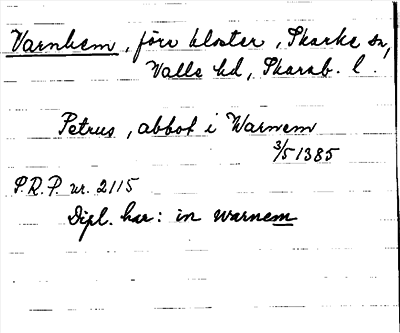 Varnhem, förv kloster, Skarke sn,
Valle hd, Skarab. l.
Petrus, abbot i Warnem
3/5 1385
P.R.P. nr. 2115
Dipl. har: in warnem